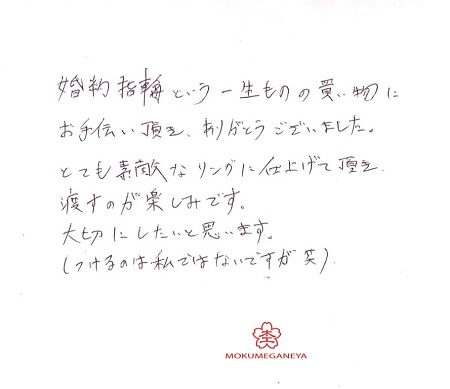 婚約指輪という一生ものの買い物に
お手伝い頂き、ありがとうございました。
とても素敵なリングに仕上げて頂き
渡すのが楽しみです。
大切にしたいと思います。
(つけるのは私ではないですが笑)
MOKUMEGANEYA